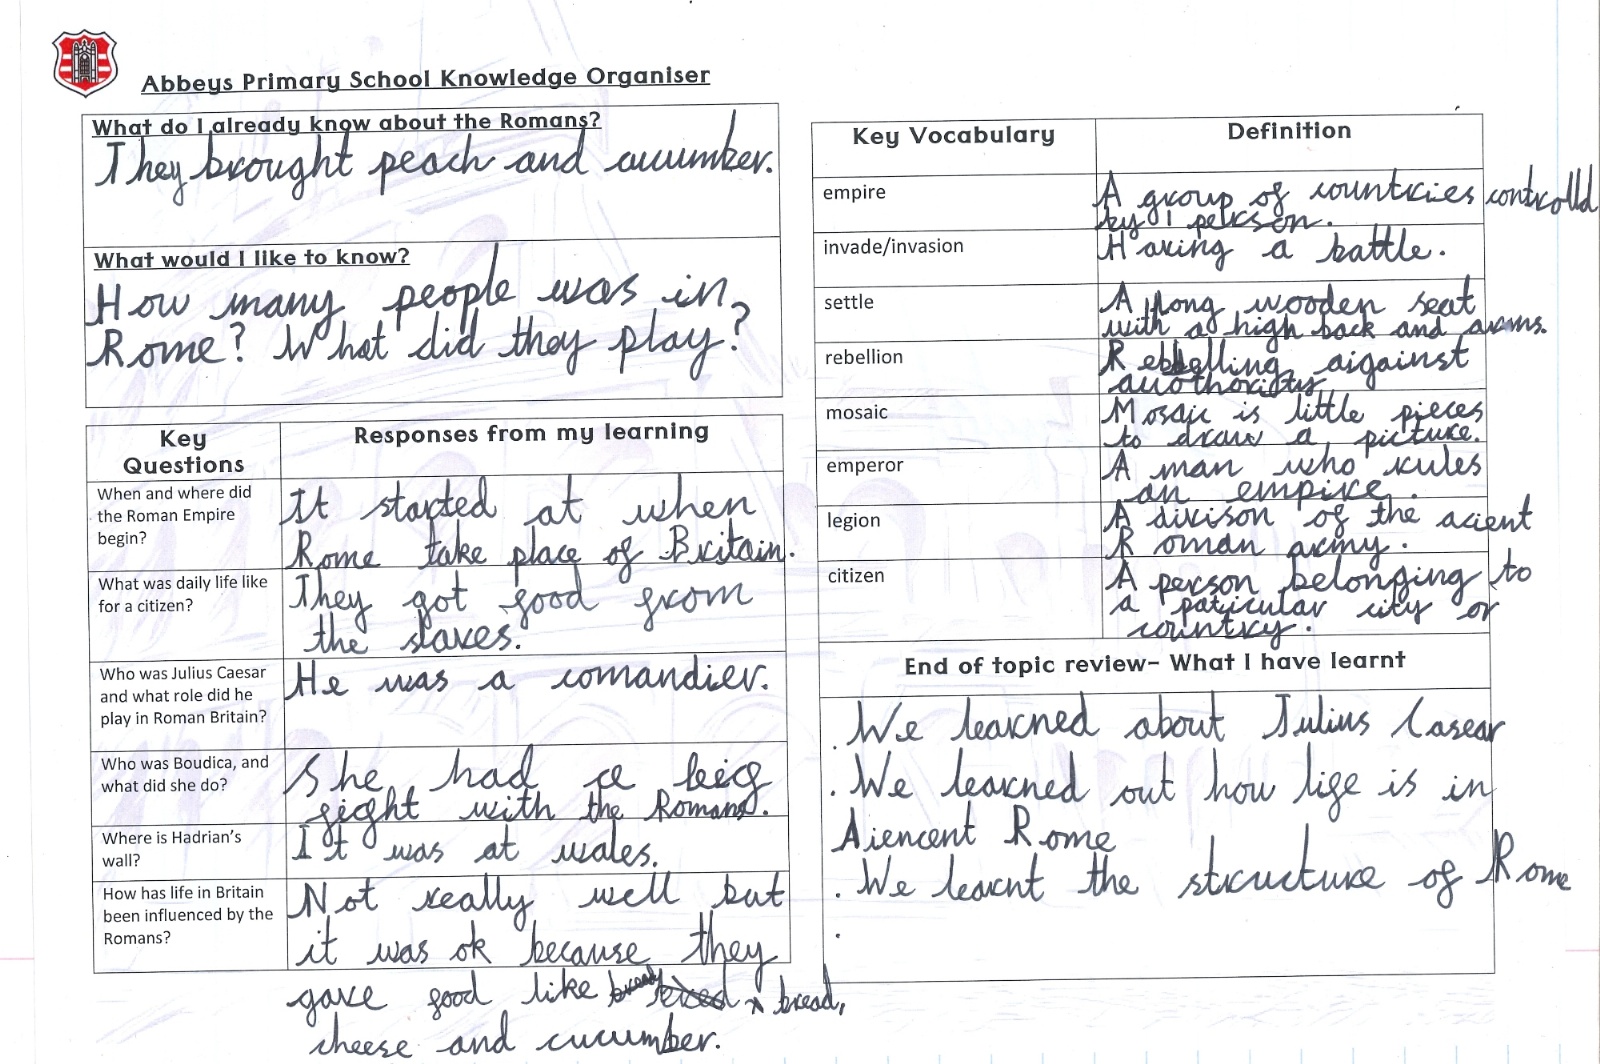 Abbeys Primary School Knowledge Organiser
What do I already know about the Romans?
They brought peach and cucumber.
What would I like to know?
How many people was in
Rome? What did they play?
Key Questions
Responses from my learning
When and where did
the Roman Empire
begin?
It started at when
Rome take place of Britain.
What was daily life like
for a citizen?
They got food from
the slaves.
Who was Julius Caesar
and what role did he
play in Roman Britain?
He was a comandier.
Who was Boudica, and
what did she do?
She had a big
fight with the Romans.
Where is Hadrian's
wall?
It was at wales.
How has life in Britain
been influenced by the
Romans?
Not really well but
it was ok because they
gave food like bread,
cheese and cucumber.
Key Vocabulary
Definition
empire
A group of countries controlld
by 1 person.
invade/invasion
Having a battle.
settle
A long wooden seat
with a high back and arms.
rebellion
Rebelling aigainst
auothority
mosaic
Mosaic is little pieces
to draw a picture.
emperor
A man who rules
an empire.
legion
A divison of the acient
Roman army.
citizen
A person belonging to
a paticular city or
country.
End of topic review– What I have learnt
. We learned about Julius Casear
. We learned out how life is in
Aiencent Rome
. We learnt the structure of Rome
.